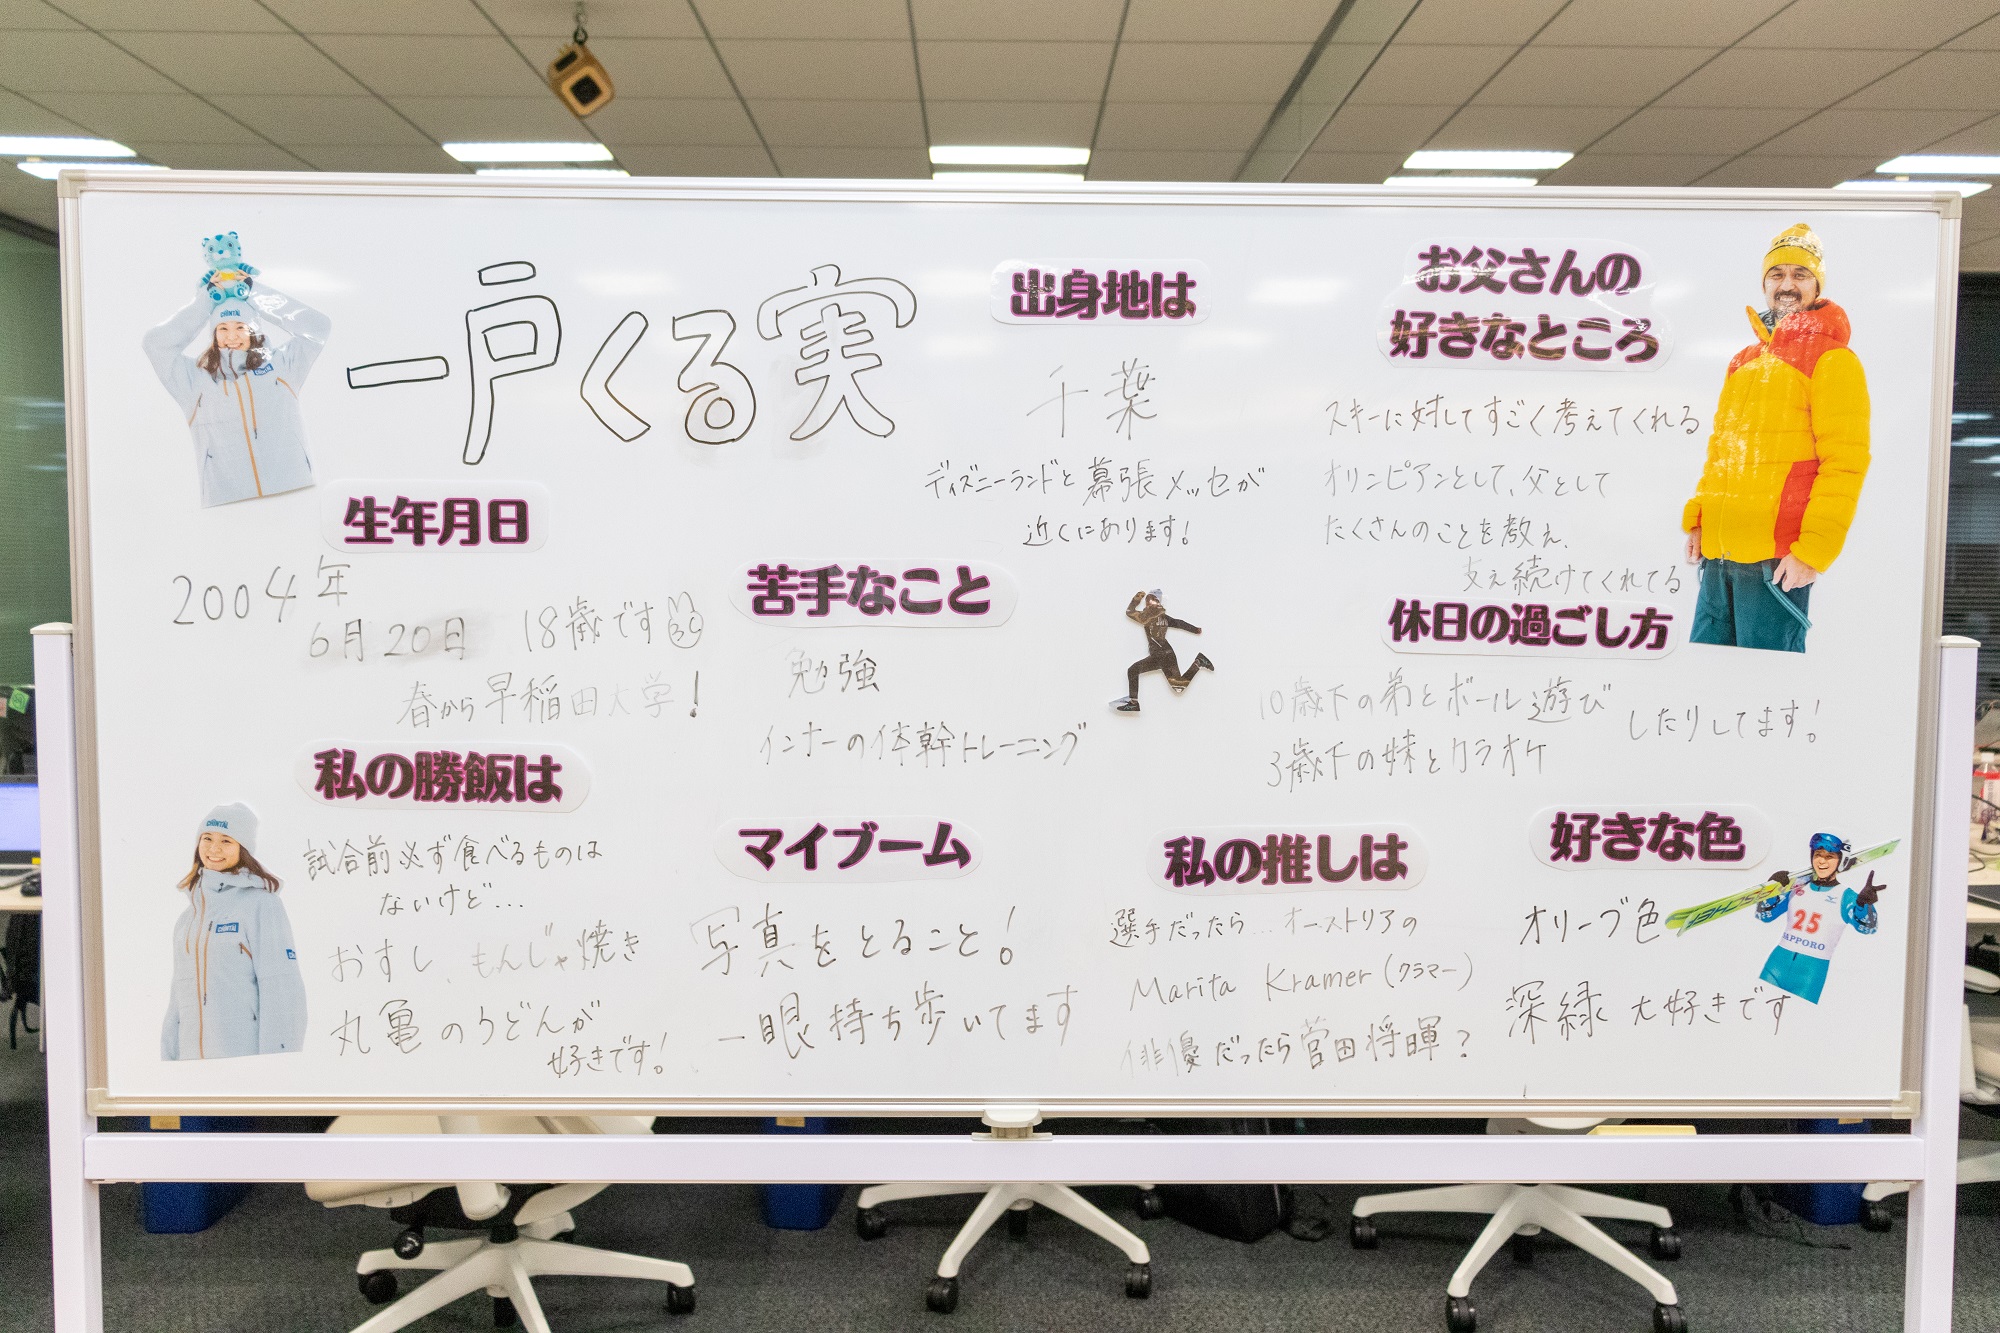 一戸くる実
生年月日
2004年
6月20日 18歳です
春から早稲田大学!
私の勝飯は
試合前必ず食べるものは
ないけど…
おすし、もんじゃ焼き
丸亀のうどんが
好きです!
出身地は
千葉
ディズニーランドと幕張メッセが
近くにあります!
苦手なこと
勉強
インナーの体幹トレーニング
マイブーム
写真をとること!
一眼持ち歩いてます
お父さんの
好きなところ
スキーに対してすごく考えてくれる
オリンピアンとして、父として
たくさんのことを教え、
支え続けてくれてる
休日の過ごし方
10歳下の弟とボール遊び
3歳下の妹とカラオケ
したりしてます!
私の推しは
選手だったら…オーストリアの
Marita Kramer(クラマー)
俳優だったら菅田将暉?
好きな色
オリーブ色
深緑 大好きです
CHINTAI
CHINTAI
CHINTAI
CHINTAI
25
SAPPORO
FISCHER